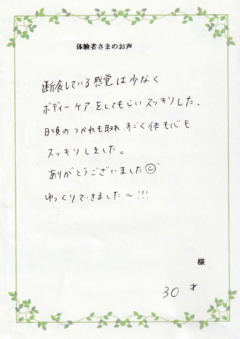 体験者さまのお声
断食している感覚は少なく
ボディーケアをしてもらいスッキリした。
日頃のつかれも取れ、すごく体も心も
スッキリしました。
ありがとうございました☺
ゆっくりできました〜!!!
様
30才